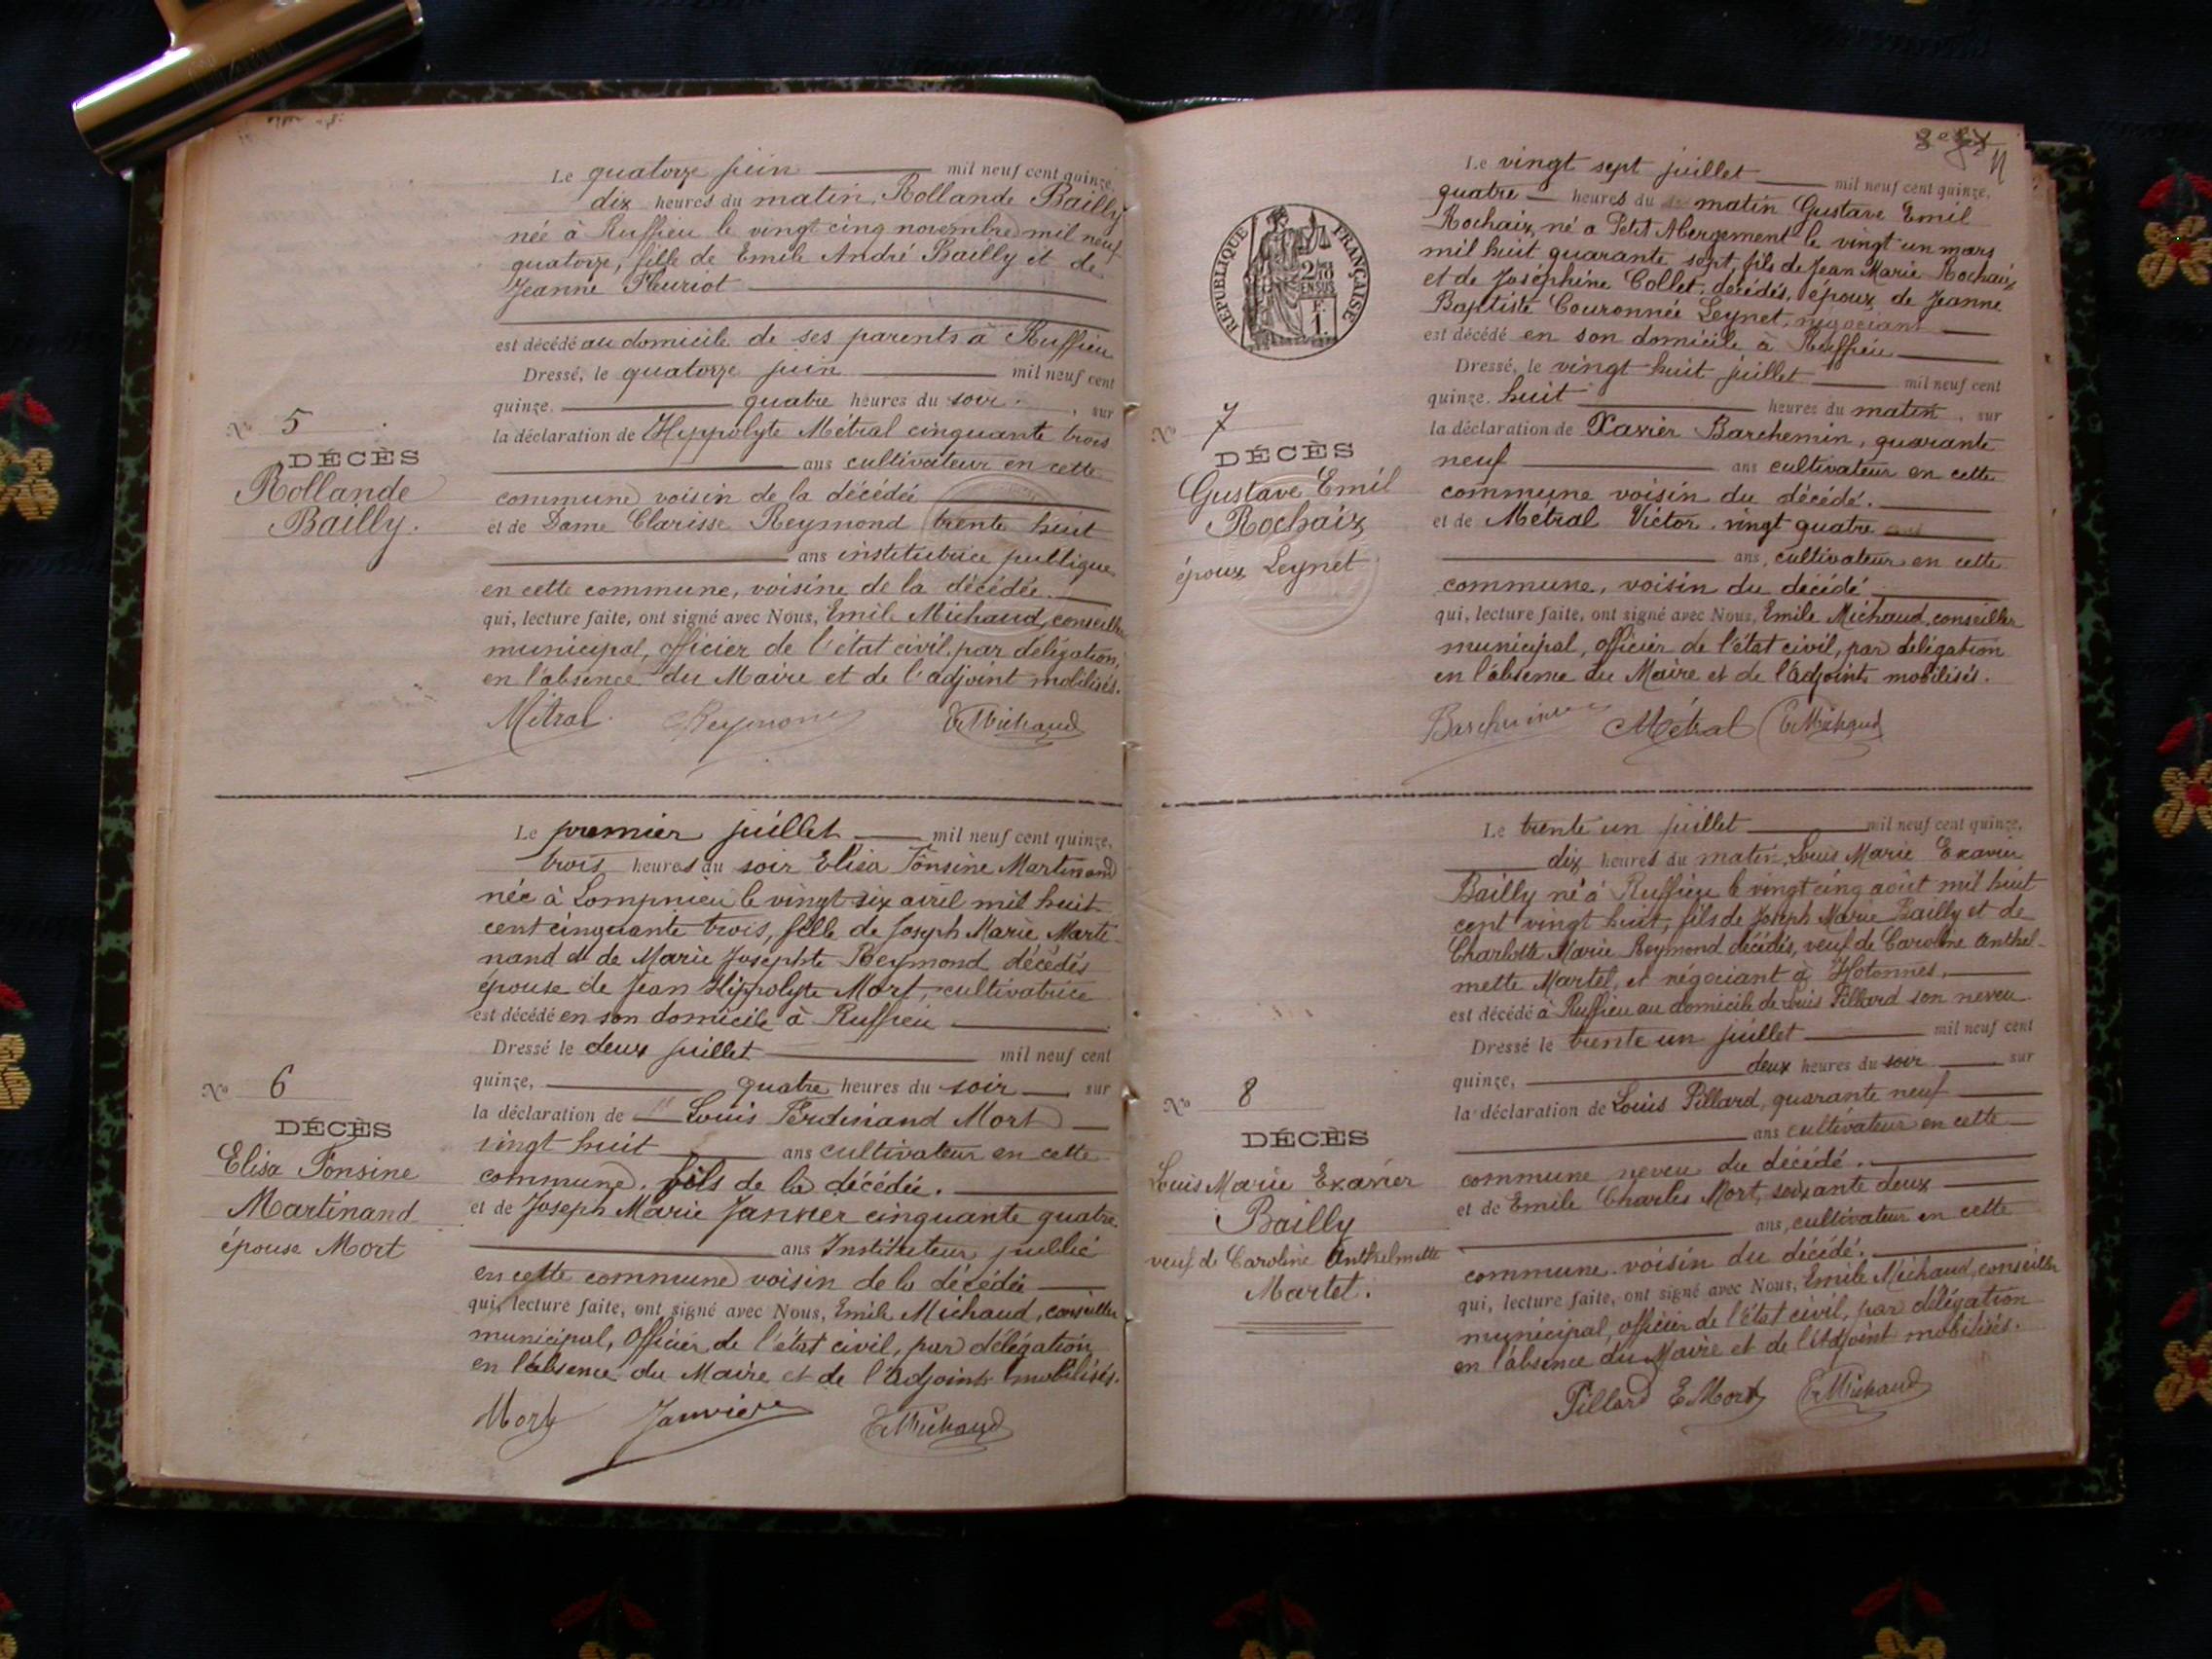 Le quatorze juin mil neuf cent quinze,
dix heures du matin, Rollande Bailly
née à Ruffieu le vingt cinq novembre mil neuf
quatorze, fille de Emile André Bailly et de
Jeanne Fleuriot
est décédé au domicile de ses parents à Ruffieu
Dressé, le quatorze juin mil neuf cent
quinze, quatre heures du soir, sur
la déclaration de Hippolyte Métral cinquante trois
ans cultivateur en cette
commune voisin de la décédée
et de Dame Clarisse Reymond trente huit
ans institutrice publique
en cette commune, voisine de la décédée.
qui, lecture faite, ont signé avec Nous, Emile Michaud, conseiller
municipal, officier de l'état civil, par délégation,
en l'absence du Maire et de l'adjoint mobilisés.
Métral CReymond E Michaud
No 5
DÉCÈS
Rollande
Bailly.
Le premier juillet mil neuf cent quinze,
trois heures du soir Elisa Fonsine Martinand
née à Lompnieu le vingt six avril mil huit
cent cinquante trois, fille de Joseph Marie Marti-
nand et de Marie Josephte Reymond décédés
épouse de Jean Hippolyte Mort, cultivatrice
est décédé en son domicile à Ruffieu
Dressé le deux juillet mil neuf cent
quinze, quatre heures du soir, sur
la déclaration de Louis Ferdinand Mort
vingt huit ans cultivateur en cette
commune, fils de la décédée.
et de Joseph Marie Janvier cinquante quatre
ans Instituteur public
en cette commune voisin de la décédée
qui, lecture faite, ont signé avec Nous, Emile Michaud, conseiller
municipal, Officier de l'état civil, par délégation
en l'absence du Maire et de l'adjoint mobilisés.
Mort Janvier E Michaud
No 6
DÉCÈS
Elisa Fonsine
Martinand
épouse Mort
RÉPUBLIQUE FRANÇAISE
2/10 EN SUS
F.
1.
Le vingt sept juillet mil neuf cent quinze,
quatre heures du matin Gustave Emil
Rochaix, né a Petit Abergement le vingt un mars
mil huit quarante sept, fils de Jean Marie Rochaix
et de Joséphine Collet, décédés, époux de Jeanne
Baptiste Couronnée Leynet, négociant
est décédé en son domicile à Ruffieu
Dressé, le vingt huit juillet mil neuf cent
quinze, huit heures du matin, sur
la déclaration de Xavier Barchemin, quarante
neuf ans cultivateur en cette
commune voisin du décédé.
et de Métral Victor, vingt quatre
ans, cultivateur en cette
commune, voisin du décédé
qui, lecture faite, ont signé avec Nous, Emile Michaud, conseiller
municipal, officier de l'état civil, par délégation
en l'absence du Maire et de l'adjoint mobilisés.
Métral E Michaud
No 7
DÉCÈS
Gustave Emil
Rochaix
époux Leynet
Le trente un juillet mil neuf cent quinze,
dix heures du matin, Louis Marie Exavier
Bailly né à Ruffieu le vingt cinq août mil huit
cent vingt huit, fils de Joseph Marie Bailly et de
Charlotte Marie Reymond décédés, veuf de Caroline Anthel-
mette Martel, et négociant à Hotonnes,
est décédé à Ruffieu au domicile de Louis Pillard son neveu
Dressé le trente un juillet mil neuf cent
quinze, deux heures du soir sur
la déclaration de Louis Pillard, quarante neuf
ans cultivateur en cette
commune neveu du décédé.
et de Emile Charles Mort, soixante deux
ans, cultivateur en cette
commune voisin du décédé.
qui, lecture faite, ont signé avec Nous, Emile Michaud, conseiller
municipal, officier de l'état civil, par délégation
en l'absence du Maire et de l'Adjoint mobilisés.
Pillard E Mort E Michaud
No 8
DÉCÈS
Louis Marie Exavier
Bailly
veuf de Caroline Anthelmette
Martel.